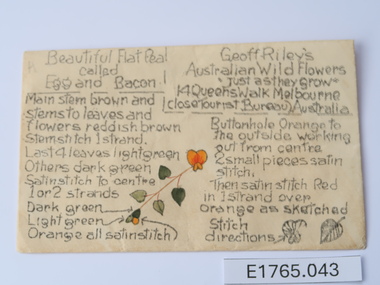 Beautiful Flat Pea
called
Egg and Bacon
Main stem brown and
stems to leaves and
flowers reddish brown
Stemstitch 1 strand.
Last 4 leaves light green
Others dark green
Satin stitch to centre
1 or 2 strands
Dark green
Light green
Orange all satin stitch
Geoff Riley's
Australian Wild Flowers
"Just as they grow"
14 Queens Walk Melbourne
(close Tourist Bureau) Australia
Buttonhole Orange to
the outside working
out from centre
2 small pieces satin
stitch.
Then satin stitch Red
in 1 strand over
orange as sketched
Stitch
directions
E1765.043